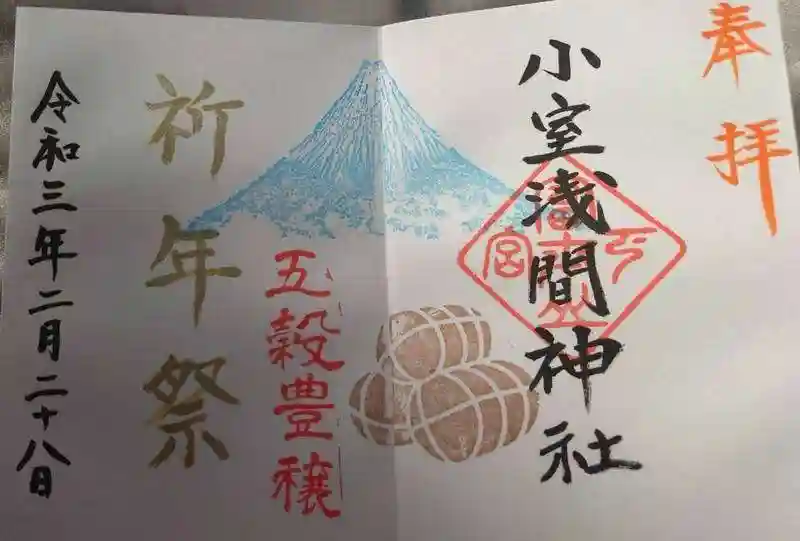 奉拝
小室浅間神社
五穀豊穣
祈年祭
令和三年二月二十八日